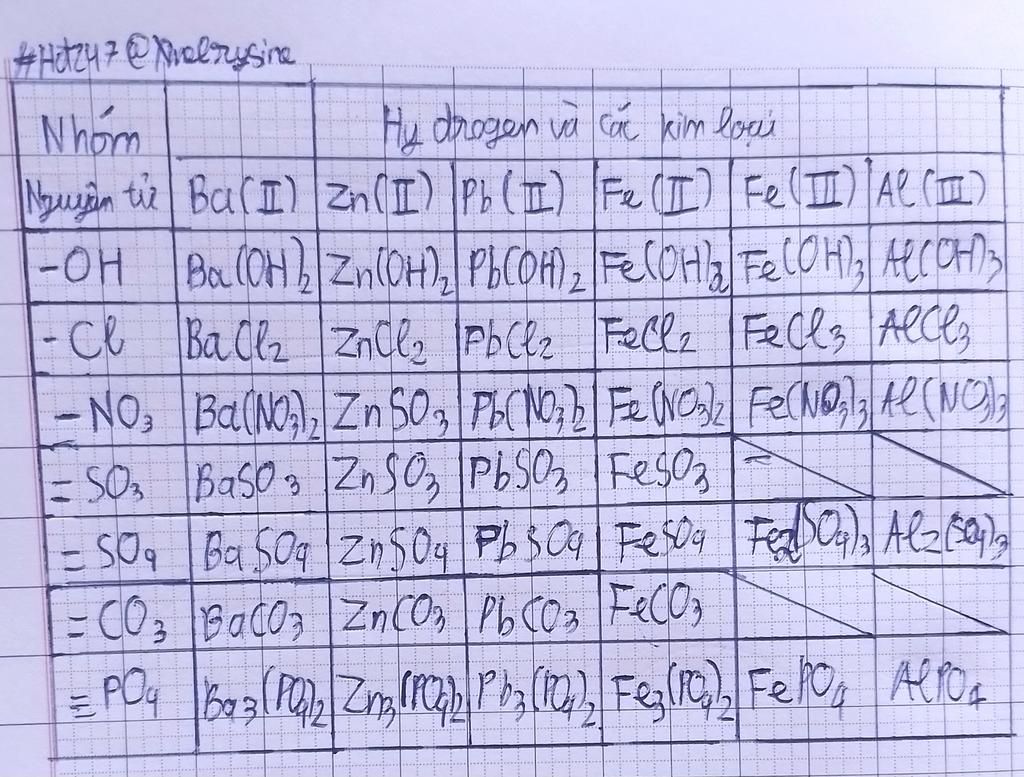 #Hdz47@
Hydrogen và các kim loại
Nhóm
Nguyên tử Ba(II) Zn(II) Pb(II) Fe(II) Fe(III) Al(III)
-OH Ba(OH)2 Zn(OH)2 Pb(OH)2 Fe(OH)2 Fe(OH)3 Al(OH)3
-Cl BaCl2 ZnCl2 PbCl2 FeCl2 FeCl3 AlCl3
-NO3 Ba(NO3)2 ZnSO3 Pb(NO3)2 Fe(NO3)2 Fe(NO3)3 Al(NO3)3
=SO3 BaSO3 ZnSO3 PbSO3 FeSO3
=SO4 BaSO4 ZnSO4 PbSO4 FeSO4 Fe2(SO4)3 Al2(SO4)3
=CO3 BaCO3 ZnCO3 PbCO3 FeCO3
≡PO4 Ba3(PO4)2 Zn3(PO4)2 Pb3(PO4)2 Fe3(PO4)2 FePO4 AlPO4